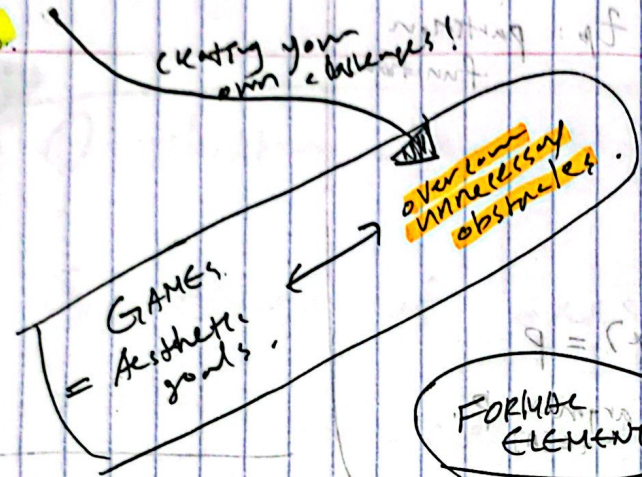 creating your
own challenges!
overcome
unnecessary
obstacles.
GAMES
= Aesthetic
goals.
FORMAL
ELEMENT